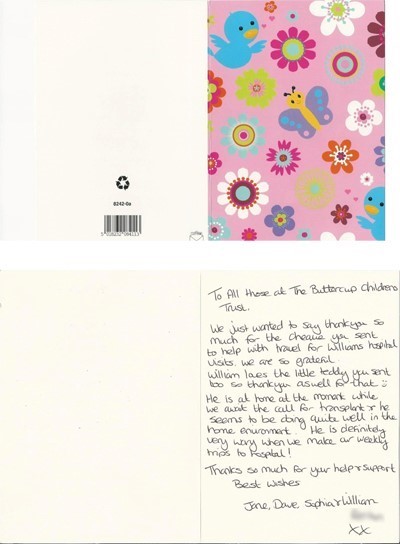 8242-0a
5 038252 094113
To All those at The Buttercup Childrens
Trust,
We just wanted to say thankyou so
much for the cheque you sent
to help with travel for Williams hospital
visits. we are so grateful.
William loves the little teddy you sent
too so thankyou aswell for that :)
He is at home at the moment while
we await the call for transplant & he
seems to be doing quite well in the
home environment. He is definitely
very wary when we make our weekly
trips to hospital!
Thanks so much for your help & support
Best wishes
Jane, Dave, Sophia & William
xx